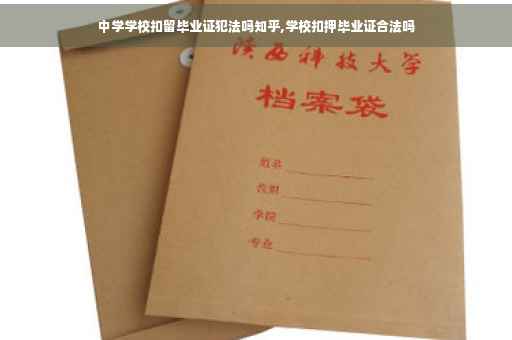 中学学校扣留毕业证犯法吗知乎,学校扣押毕业证合法吗
陕西科技大学
档案袋
姓名
学院
专业